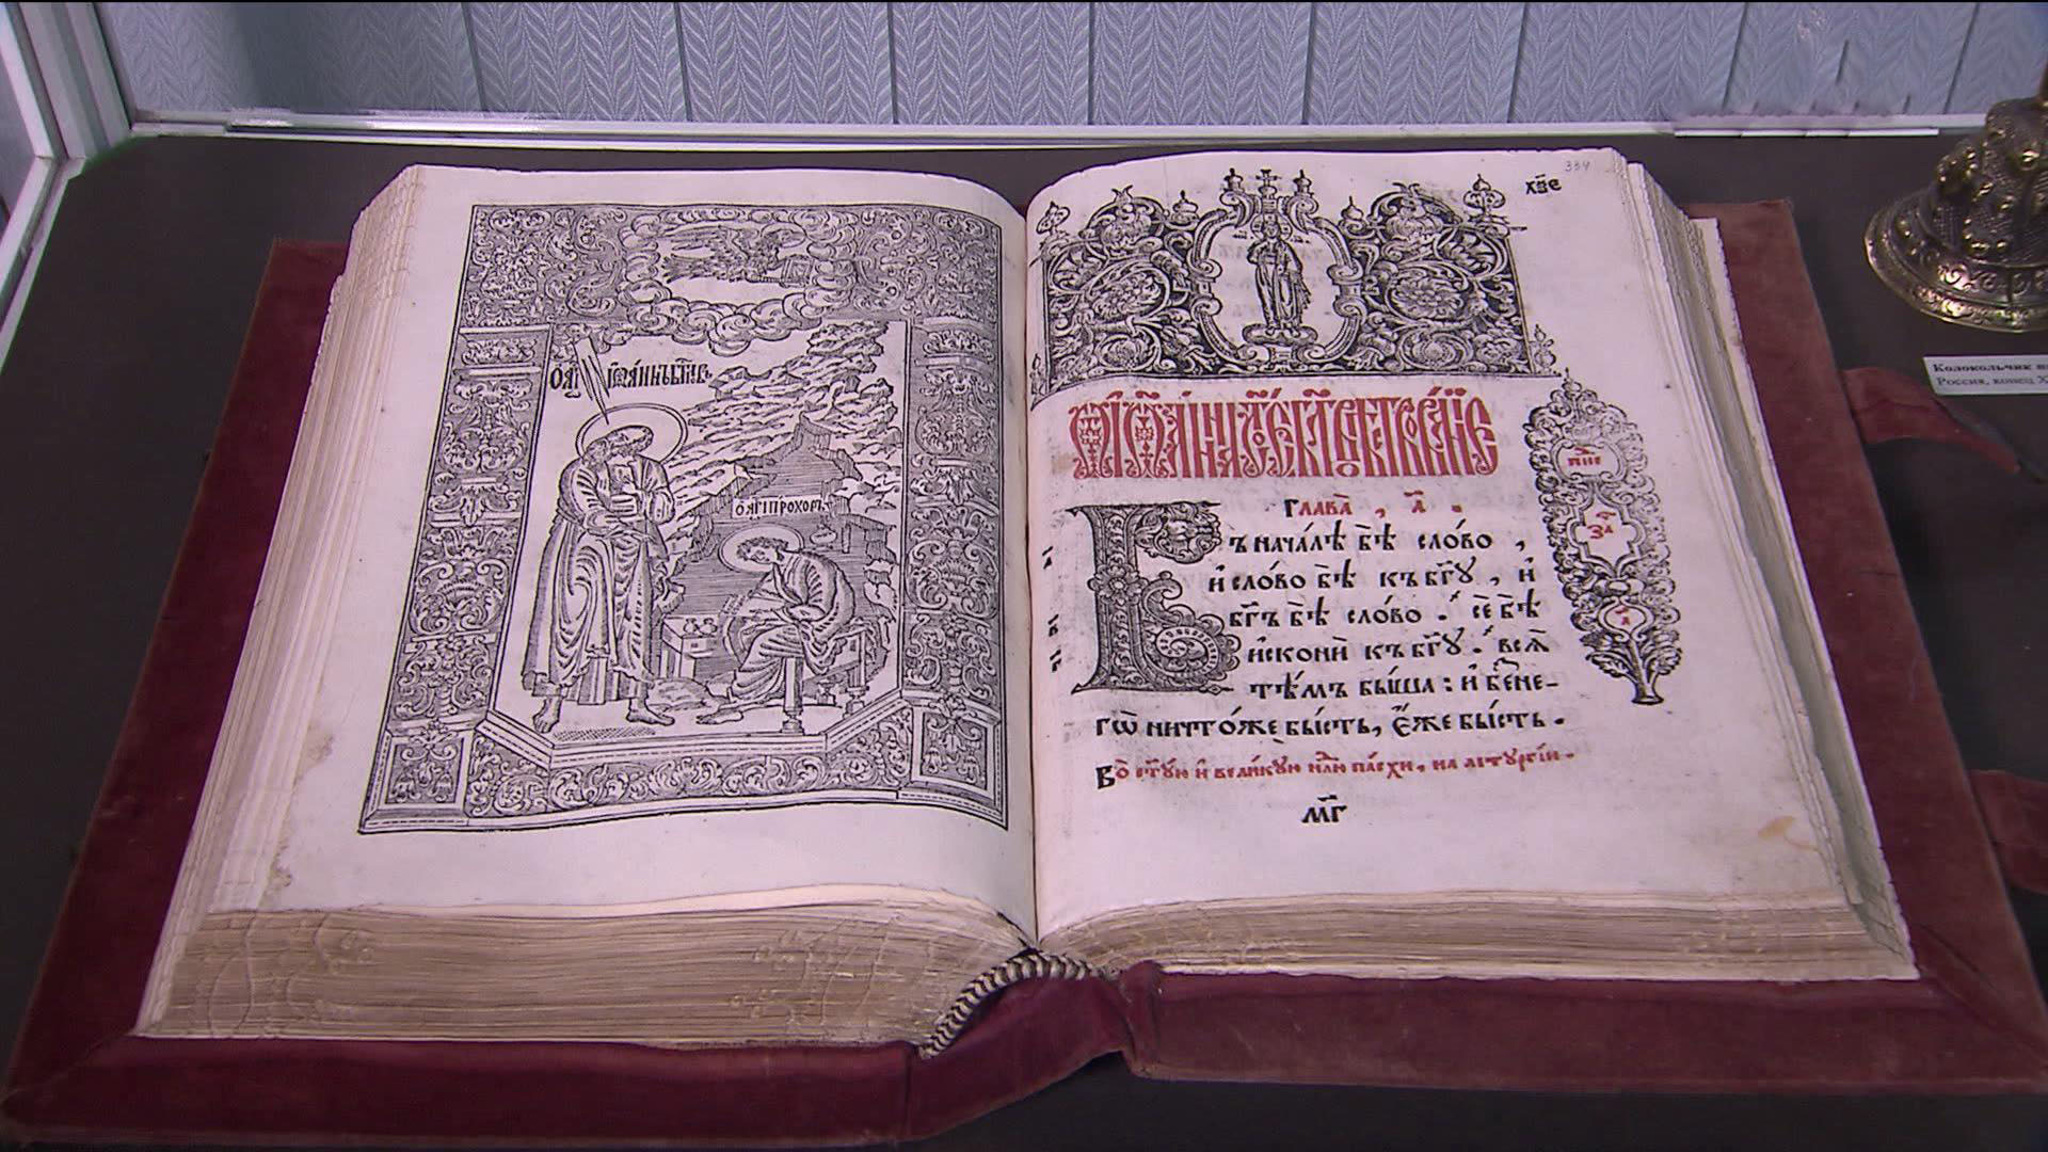 О АГІ ІѠАННЪ БГСЛВЪ
О АГІ ПРОХОРЪ
334
ГЛАВА̀, А҃.
Въ нача́лѣ бѣ̀ сло́во,
и҆ сло́во бѣ̀ къ бг҃ꙋ, и҆
бг҃ъ бѣ̀ сло́во. се́ бѣ̀
и҆сконѝ къ бг҃ꙋ. всѧ̑
тѣ́мъ бы́ша: и҆ без̾ не-
гѡ̀ ничто́же бы́сть, є҆́же бы́сть.
Во ст҃ꙋю и҆ вели́кꙋю нл҃ю па́схи, на литꙋргі́и.
мг҃
пиг
за҃
а҃
Колокольчик
Россия, конец X